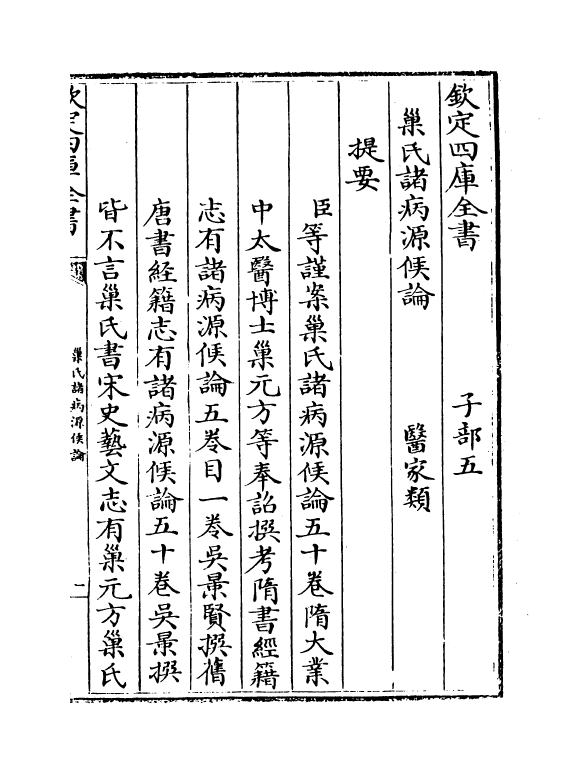 欽定四庫全書　子部五
巢氏諸病源候論　醫家類
提要
臣等謹案巢氏諸病源候論五十卷隋大業
中太醫博士巢元方等奉詔撰考隋書經籍
志有諸病源候論五卷目一卷吳景賢撰舊
唐書經籍志有諸病源候論五十卷吳景撰
皆不言巢氏書宋史藝文志有巢元方巢氏
欽定四庫全書
巢氏諸病源候論